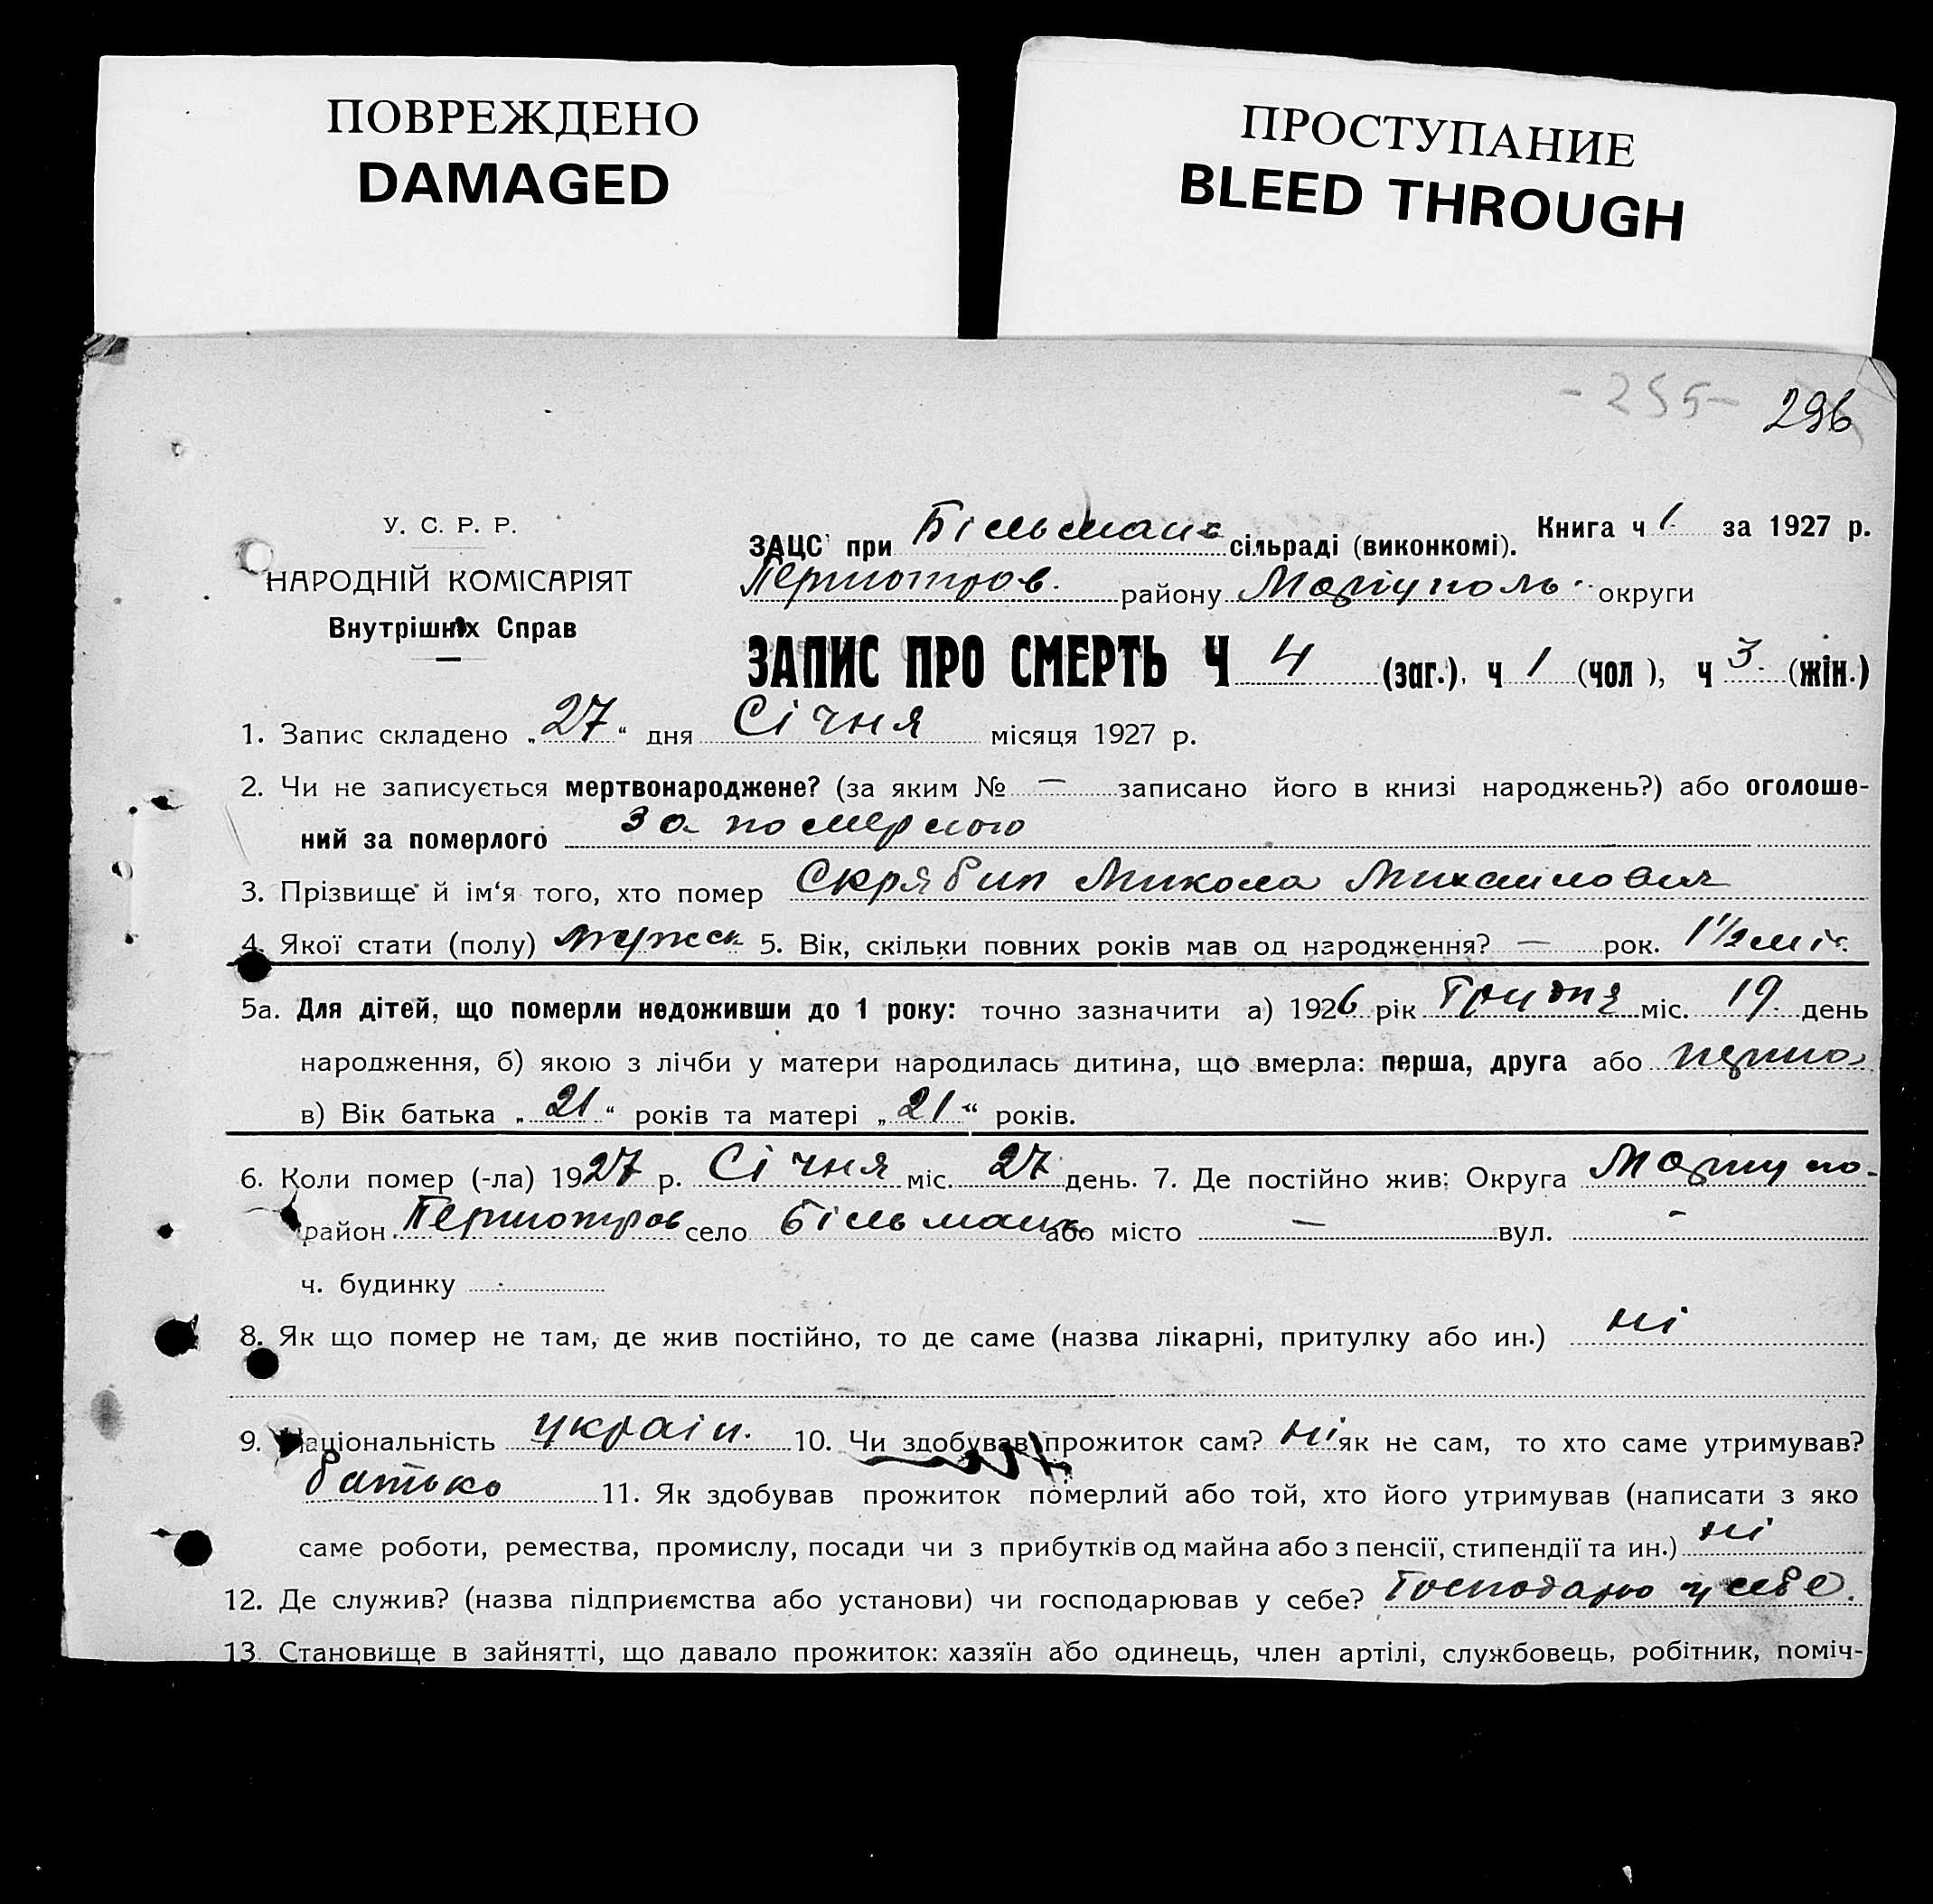 ПОВРЕЖДЕНО
DAMAGED
ПРОСТУПАНИЕ
BLEED THROUGH
- 255 - 296
У. С. Р. Р.
НАРОДНІЙ КОМІСАРІЯТ
Внутрішніх Справ
ЗАЦС при Більмацьк сільраді (виконкомі). Книга ч 1 за 1927 р.
Першотров. району Маріуполь. округи
ЗАПИС ПРО СМЕРТЬ Ч 4 (заг.), ч 1 (чол), ч 3. (жін.)
1. Запис складено „27“ дня Січня місяця 1927 р.
2. Чи не записується мертвонароджене? (за яким № — записано його в книзі народжень?) або оголоше-
ний за померлого За померлого
3. Прізвище й ім‘я того, хто помер Скрябин Микола Михайлович
4. Якої стати (полу) мужеск 5. Вік, скільки повних років мав од народження? — рок. 1 1/2 міс.
5а. Для дітей, що померли недоживши до 1 року: точно зазначити а) 1926 рік Грудня міс. 19. день
народження, б) якою з лічби у матери народилась дитина, що вмерла: перша, друга або перша
в) Вік батька „21“ років та матері „21“ років.
6. Коли помер (-ла) 1927 р. Січня міс. 27 день. 7. Де постійно жив: Округа Мариупо-
район Першотров село Більмацьк або місто — вул. -
ч. будинку
8. Як що помер не там, де жив постійно, то де саме (назва лікарні, притулку або ин.) ні
9. Національність україн. 10. Чи здобував прожиток сам? ні як не сам, то хто саме утримував?
батько 11. Як здобував прожиток померлий або той, хто його утримував (написати з яко
саме роботи, ремества, промислу, посади чи з прибутків од майна або з пенсії, стипендії та ин.) ні
12. Де служив? (назва підприємства або установи) чи господарював у себе? Господарю у себе.
13. Становище в зайнятті, що давало прожиток: хазяїн або одинець, член артілі, службовець, робітник, поміч-